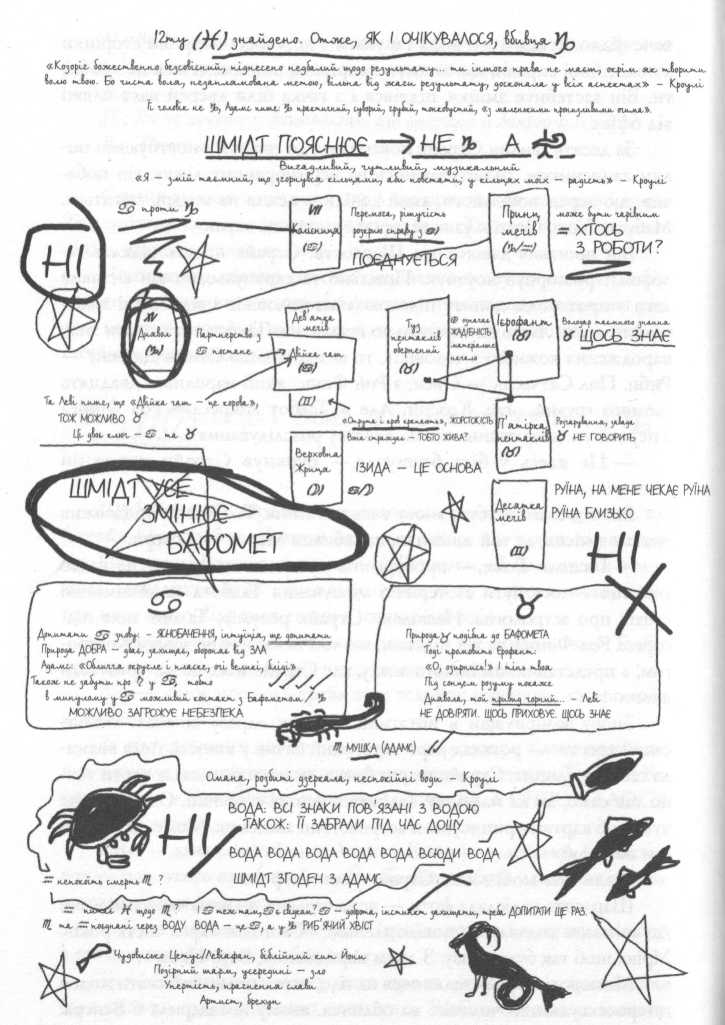 12ту (♓) знайдено. Отже, ЯК І ОЧІКУВАЛОСЯ, вбивця ♑
«Козоріг божественно безсовісний, піднесено недбалий щодо результату... ти іншого права не маєш, окрім як творити
волю твою. Бо чиста воля, незаплямована метою, вільна від жаги результату, досконала у всіх аспектах» – Кроулі
Її чоловік не ♑, Адамс пише: ♑ практичний, суворий, грубий, тяжозустий, «з маленькими пронизливими очима»
ШМІДТ ПОЯСНЮЄ → НЕ ♑ А
Вигадливий, чутливий, музикальний
«Я – змій таємний, що згорнувся кільцями, аби повстати; у кільцях моїх – радість» – Кроулі
♋ проти ♑
VII
Колісниця
(♋)
Перемога, рішучість
розкрию справу з ♋)
ПОЄДНУЄТЬСЯ
Принц
мечів
(♑/♒)
може бути чарівним
= ХТОСЬ
З РОБОТИ?
НІ
XV
Диявол
(♑)
Партнерство з
♋ постане
Дев'ятка
мечів
Двійка чаш
(♋)
(♊)
Верховна
Жриця
(☽)
Туз
пентаклів
обернений
(♉)
♉ означає
ЖАДІБНІСТЬ
матеріальне
начало
Ієрофант
(♉)
Володар таємного знання
♉ ЩОСЬ ЗНАЄ
Та Леві пише, що «Двійка чаш – це корова»,
ТОЖ МОЖЛИВО ♉
Ці двоє ключ – ♋ та ♉
«Отрута і кров кротить», ЖОРСТОКІСТЬ
Вона справджує – ТОБТО ЖИВА?
П'ятірка
пентаклів
(♉)
Розчарування, невдача
♉ НЕ ГОВОРИТЬ
ІЗИДА – ЦЕ ОСНОВА
♋/☽
ШМІДТ УСЕ
ЗМІНЮЄ
БАФОМЕТ
Десятка
мечів
(♊)
РУЇНА, НА МЕНЕ ЧЕКАЄ РУЇНА
РУЇНА БЛИЗЬКО
НІ
♋
Допитати ♋ знову: – ЯСНОБАЧЕННЯ, інтуїція, ще допитати
Природа ДОБРА – дбає, захищає, оборона від ЗЛА
Адамс: «Обличчя округле і пласке, очі великі, вії»
Також не забути про ? у ♋, тобто
в минулому у ♋ можливий контакт з Бафометом / ♑
МОЖЛИВО ЗАГРОЖУЄ НЕБЕЗПЕКА
♉
Природа ♉ подібна до БАФОМЕТА
Тоді промовить Єрофант:
«О, озирнись!» І тінь твоя
Під скипом розуму покаже
Диявола, той привид чорний... – Леві
НЕ ДОВІРЯТИ. ЩОСЬ ПРИХОВУЄ. ЩОСЬ ЗНАЄ
♏ МУШКА (АДАМС)
Омана, розбиті дзеркала, неспокійні води – Кроулі
ВОДА: ВСІ ЗНАКИ ПОВ'ЯЗАНІ З ВОДОЮ
ТАКОЖ: ЇЇ ЗАБРАЛИ ПІД ЧАС ДОЩУ
НІ
ВОДА ВОДА ВОДА ВОДА ВОДА ВСЮДИ ВОДА
ШМІДТ ЗГОДЕН З АДАМС
непокоїть смерть ♏ ?
♓ щодо ♏! ♋ теж там, ♋ є свідком? ♋ – доброта, інстинкт захищати, треба ДОПИТАТИ ЩЕ РАЗ.
♏ та поєднані через ВОДУ. ВОДА – це ♋, а у ♑ РИБ'ЯЧИЙ ХВІСТ
Чудовисько Цетус/Левіафан, біблійний кит Йони
Позірний шарм, усередині – зло
Упертість, прагнення слави
Артист, брехун